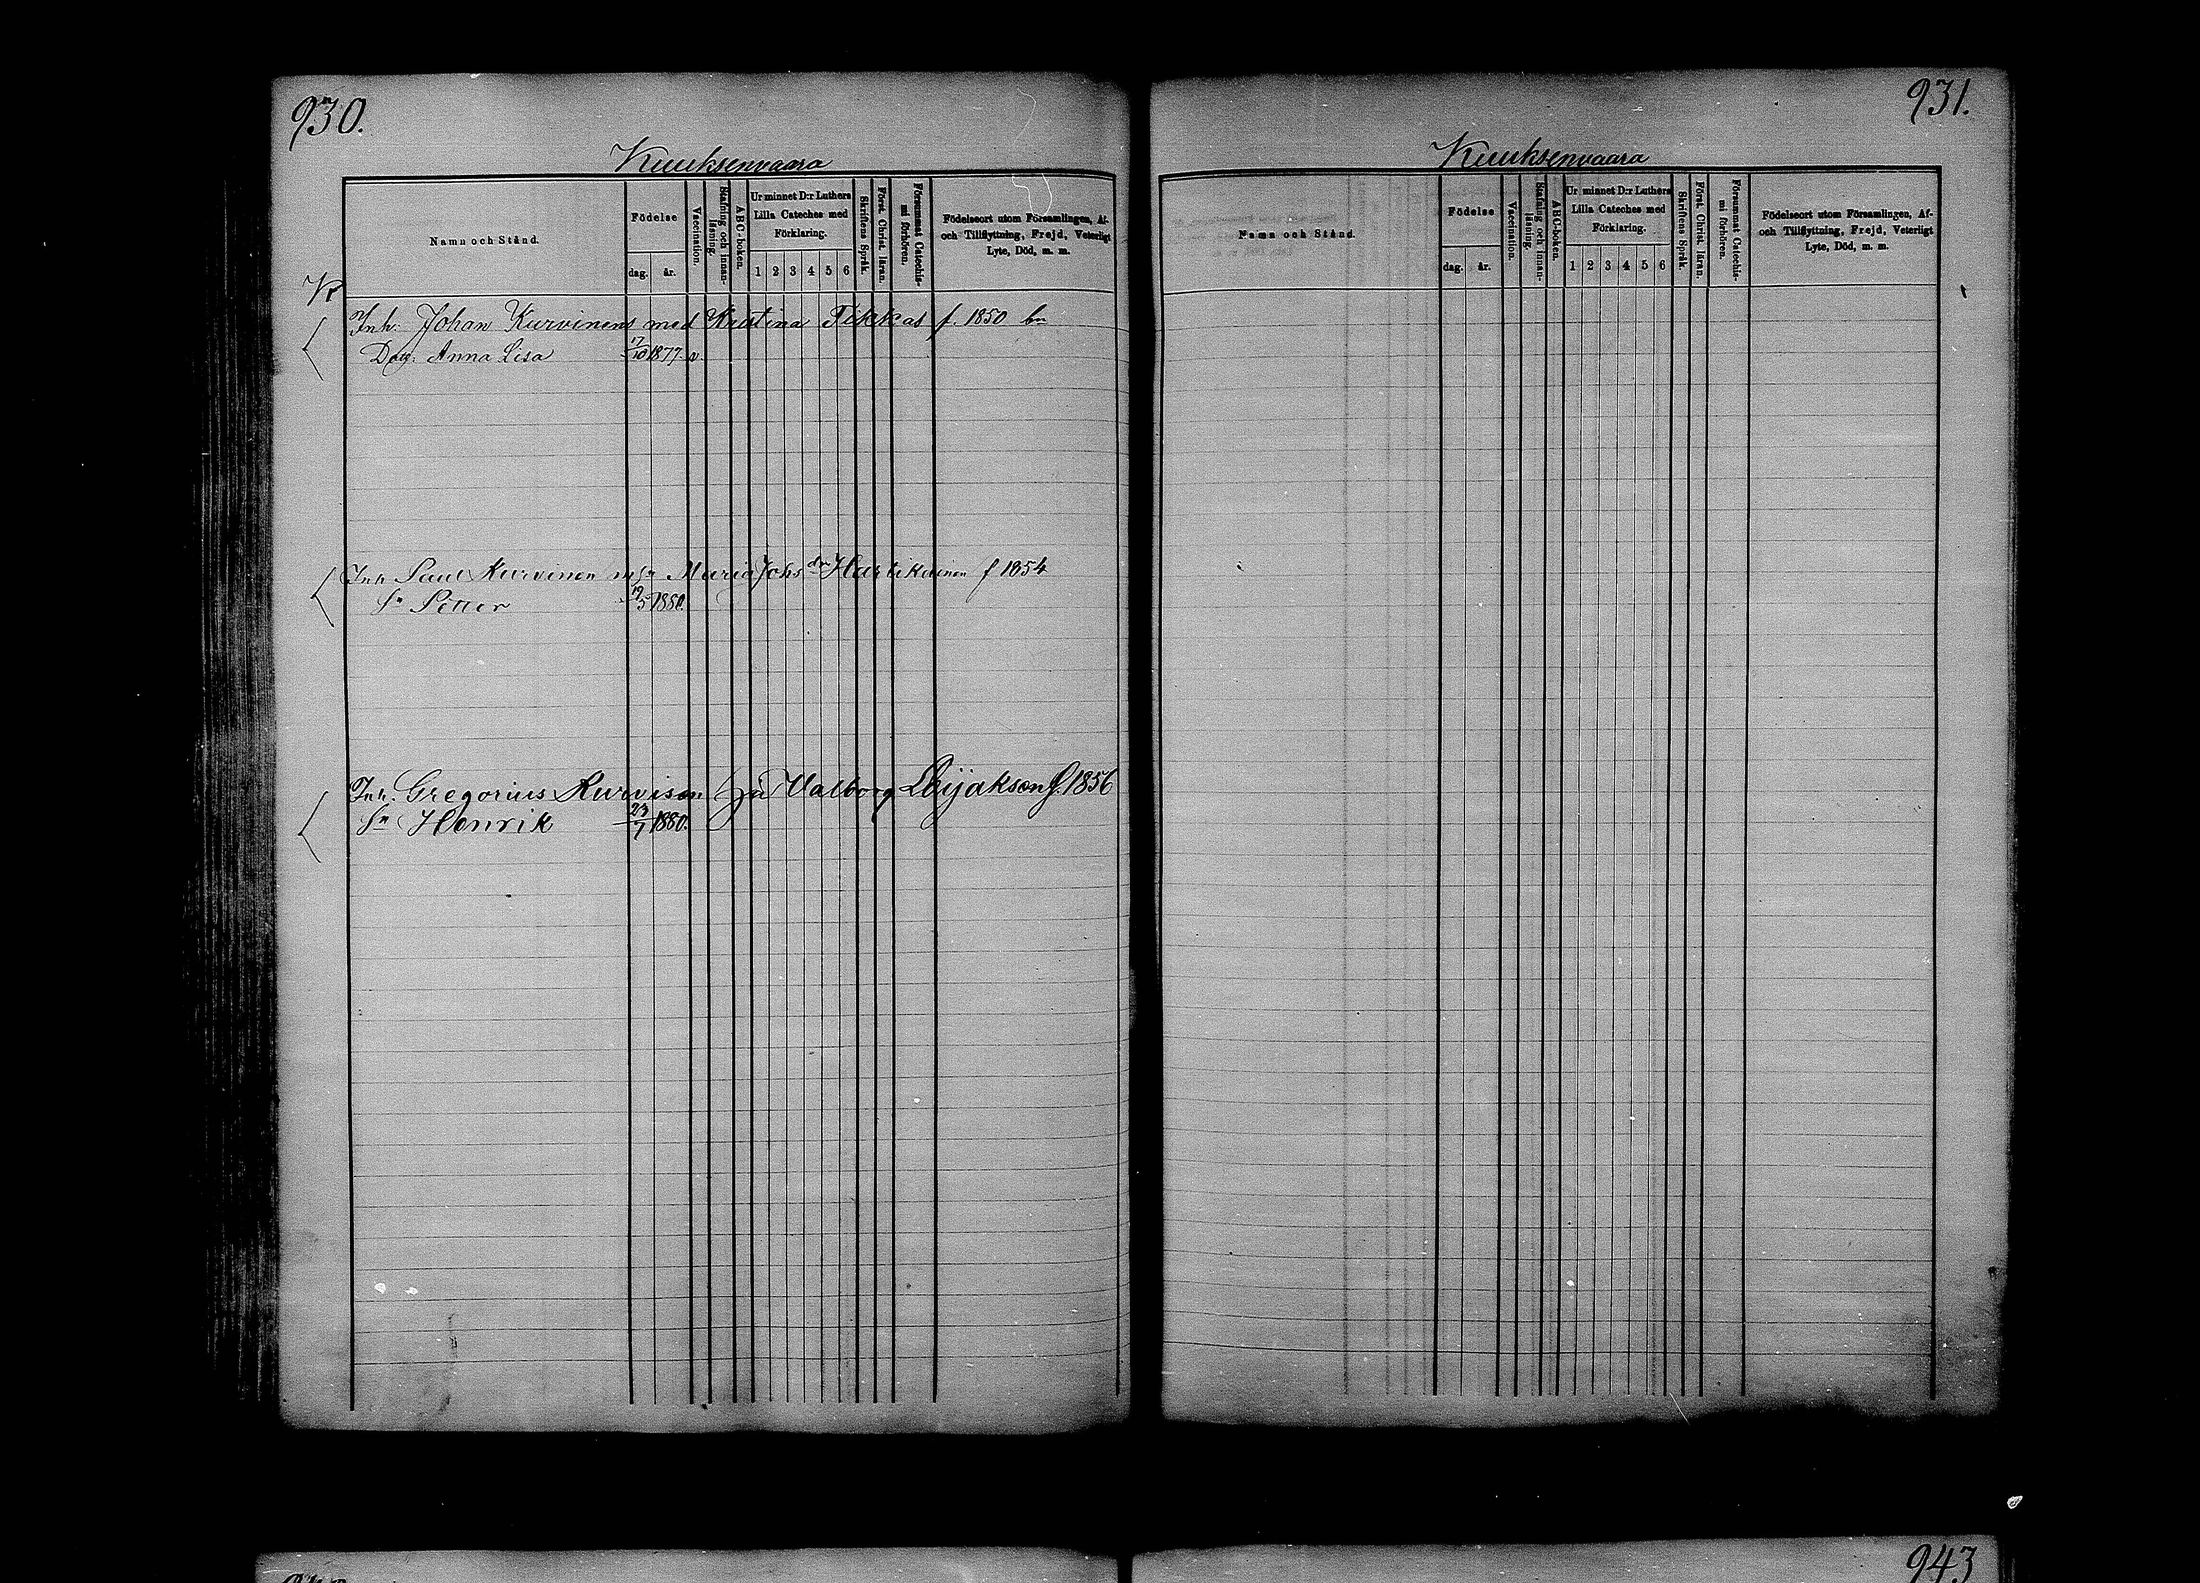 930.
Kuuksenvaara
Namn och Stånd.
Födelse
dag. år.
Vaccination.
Stafning och innan-läsning.
ABC-boken.
Ur minnet D:r Luthers
Lilla Cateches med
Förklaring.
1 2 3 4 5 6
Skriftens Språk.
Först. Christ. läran.
Försummat Catechis-
mi förhören.
Födelseort utom Församlingen, Af-
och Tillflyttning, Frejd, Veterligt
Lyte, Död, m. m.
Inh. Johan Kurvinens med Kristina Tikkas f. 1850
Dog. Anna Lisa 17/10 1877 v.
Inh Paul Kurvinen Maria Johs dr Hartikainen f 1854
Sn Petter 19/5 1880.
Inh. Gregorius Kurvisen Valborg f. 1856
Sn Henrik 23/7 1880.
931.
Kuuksenvaara
Namn och Stånd.
Födelse
dag. år.
Vaccination.
Stafning och innan-läsning.
ABC-boken.
Ur minnet D:r Luthers
Lilla Cateches med
Förklaring.
1 2 3 4 5 6
Skriftens Språk.
Först. Christ. läran.
Försummat Catechis-
mi förhören.
Födelseort utom Församlingen, Af-
och Tillflyttning, Frejd, Veterligt
Lyte, Död, m. m.
943